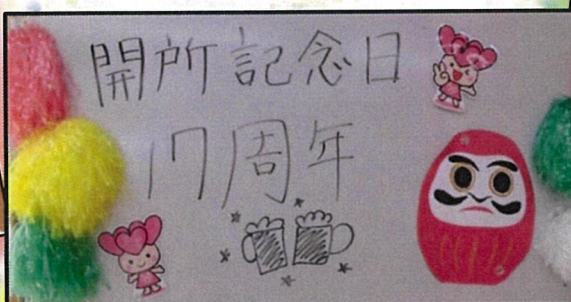 開所記念日
17周年